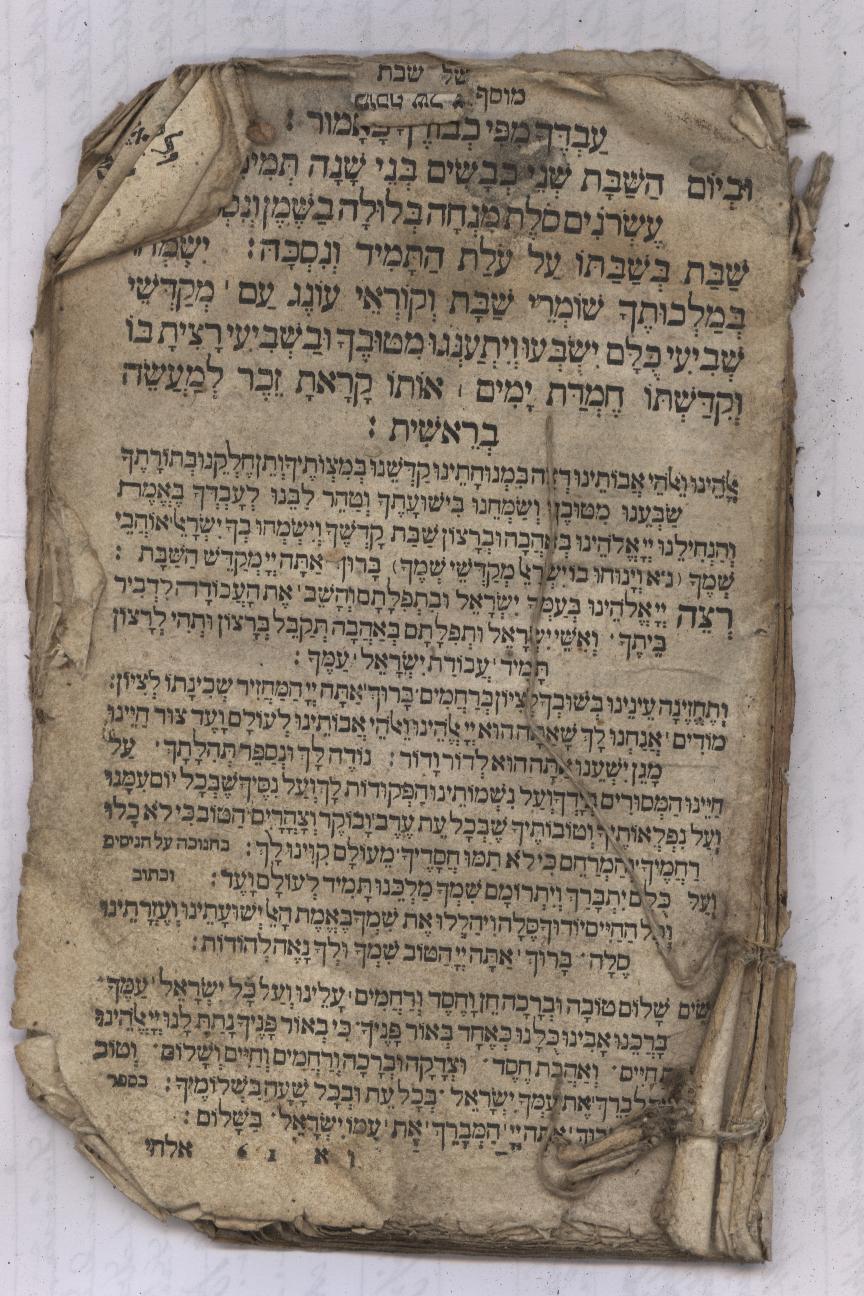 של שבת
מוסף
עַבְדֶּךָ מִפִּי כְבוֹדֶךָ כָּאָמוּר :
וּבְיוֹם הַשַּׁבָּת שְׁנֵי כְבָשִׂים בְּנֵי שָׁנָה
עֶשְׂרֹנִים סֹלֶת מִנְחָה בְּלוּלָה בַשֶּׁמֶן
שַׁבַּת בְּשַׁבַּתּוֹ עַל עֹלַת הַתָּמִיד וְנִסְכָּהּ :
בְּמַלְכוּתְךָ שׁוֹמְרֵי שַׁבָּת וְקוֹרְאֵי עוֹנֶג עַם מְקַדְּשֵׁי
שְׁבִיעִי כֻּלָּם יִשְׂבְּעוּ וְיִתְעַנְּגוּ מִטּוּבֶךָ וּבַשְּׁבִיעִי רָצִיתָ בּוֹ
וְקִדַּשְׁתּוֹ חֶמְדַּת יָמִים אוֹתוֹ קָרָאתָ זֵכֶר לְמַעֲשֵׂה
בְרֵאשִׁית :
אֱלֹהֵינוּ וֵאלֹהֵי אֲבוֹתֵינוּ רְצֵה בִמְנוּחָתֵינוּ קַדְּשֵׁנוּ בְּמִצְוֹתֶיךָ וְתֵן חֶלְקֵנוּ בְּתוֹרָתֶךָ
שַׂבְּעֵנוּ מִטּוּבֶךָ וְשַׂמְּחֵנוּ בִּישׁוּעָתֶךָ וְטַהֵר לִבֵּנוּ לְעָבְדְּךָ בֶּאֱמֶת
וְהַנְחִילֵנוּ יְיָ אֱלֹהֵינוּ בְּאַהֲבָה וּבְרָצוֹן שַׁבַּת קָדְשֶׁךָ וְיִשְׂמְחוּ בְךָ יִשְׂרָאֵל אוֹהֲבֵי
שְׁמֶךָ (נ״א וְיָנוּחוּ בוֹ יִשְׂרָאֵל מְקַדְּשֵׁי שְׁמֶךָ) בָּרוּךְ אַתָּה יְיָ מְקַדֵּשׁ הַשַּׁבָּת :
רְצֵה יְיָ אֱלֹהֵינוּ בְּעַמְּךָ יִשְׂרָאֵל וּבִתְפִלָּתָם וְהָשֵׁב אֶת הָעֲבוֹדָה לִדְבִיר
בֵּיתֶךָ וְאִשֵּׁי יִשְׂרָאֵל וּתְפִלָּתָם בְּאַהֲבָה תְקַבֵּל בְּרָצוֹן וּתְהִי לְרָצוֹן
תָּמִיד עֲבוֹדַת יִשְׂרָאֵל עַמֶּךָ :
וְתֶחֱזֶינָה עֵינֵינוּ בְּשׁוּבְךָ לְצִיּוֹן בְּרַחֲמִים בָּרוּךְ אַתָּה יְיָ הַמַּחֲזִיר שְׁכִינָתוֹ לְצִיּוֹן :
מוֹדִים אֲנַחְנוּ לָךְ שָׁאַתָּה הוּא יְיָ אֱלֹהֵינוּ וֵאלֹהֵי אֲבוֹתֵינוּ לְעוֹלָם וָעֶד צוּר חַיֵּינוּ
מָגֵן יִשְׁעֵנוּ אַתָּה הוּא לְדוֹר וָדוֹר : נוֹדֶה לְּךָ וּנְסַפֵּר תְּהִלָּתֶךָ עַל
חַיֵּינוּ הַמְּסוּרִים בְּיָדֶךָ וְעַל נִשְׁמוֹתֵינוּ הַפְּקוּדוֹת לָךְ וְעַל נִסֶּיךָ שֶׁבְּכָל יוֹם עִמָּנוּ
וְעַל נִפְלְאוֹתֶיךָ וְטוֹבוֹתֶיךָ שֶׁבְּכָל עֵת עֶרֶב וָבוֹקֶר וְצָהֳרָיִם הַטּוֹב כִּי לֹא כָלוּ
רַחֲמֶיךָ וְהַמְרַחֵם כִּי לֹא תַמּוּ חֲסָדֶיךָ מֵעוֹלָם קִוִּינוּ לָךְ : בחנוכה על הניסים
וְעַל כֻּלָּם יִתְבָּרַךְ וְיִתְרוֹמַם שִׁמְךָ מַלְכֵּנוּ תָּמִיד לְעוֹלָם וָעֶד : וכתוב
וְכֹל הַחַיִּים יוֹדוּךָ סֶּלָה וִיהַלְלוּ אֶת שִׁמְךָ בֶּאֱמֶת הָאֵל יְשׁוּעָתֵינוּ וְעֶזְרָתֵינוּ
סֶלָה בָּרוּךְ אַתָּה יְיָ הַטּוֹב שִׁמְךָ וּלְךָ נָאֶה לְהוֹדוֹת :
שִׂים שָׁלוֹם טוֹבָה וּבְרָכָה חֵן וָחֶסֶד וְרַחֲמִים עָלֵינוּ וְעַל כָּל יִשְׂרָאֵל עַמֶּךָ
בָּרְכֵנוּ אָבִינוּ כֻּלָּנוּ כְּאֶחָד בְּאוֹר פָּנֶיךָ כִּי בְאוֹר פָּנֶיךָ נָתַתָּ לָּנוּ יְיָ אֱלֹהֵינוּ
חַיִּים וְאַהֲבַת חֶסֶד וּצְדָקָה וּבְרָכָה וְרַחֲמִים וְחַיִּים וְשָׁלוֹם וְטוֹב
לְבָרֵךְ אֶת עַמְּךָ יִשְׂרָאֵל בְּכָל עֵת וּבְכָל שָׁעָה בִּשְׁלוֹמֶיךָ : בספר
אַתָּה יְיָ הַמְבָרֵךְ אֶת עַמּוֹ יִשְׂרָאֵל בַּשָּׁלוֹם :
אלהי